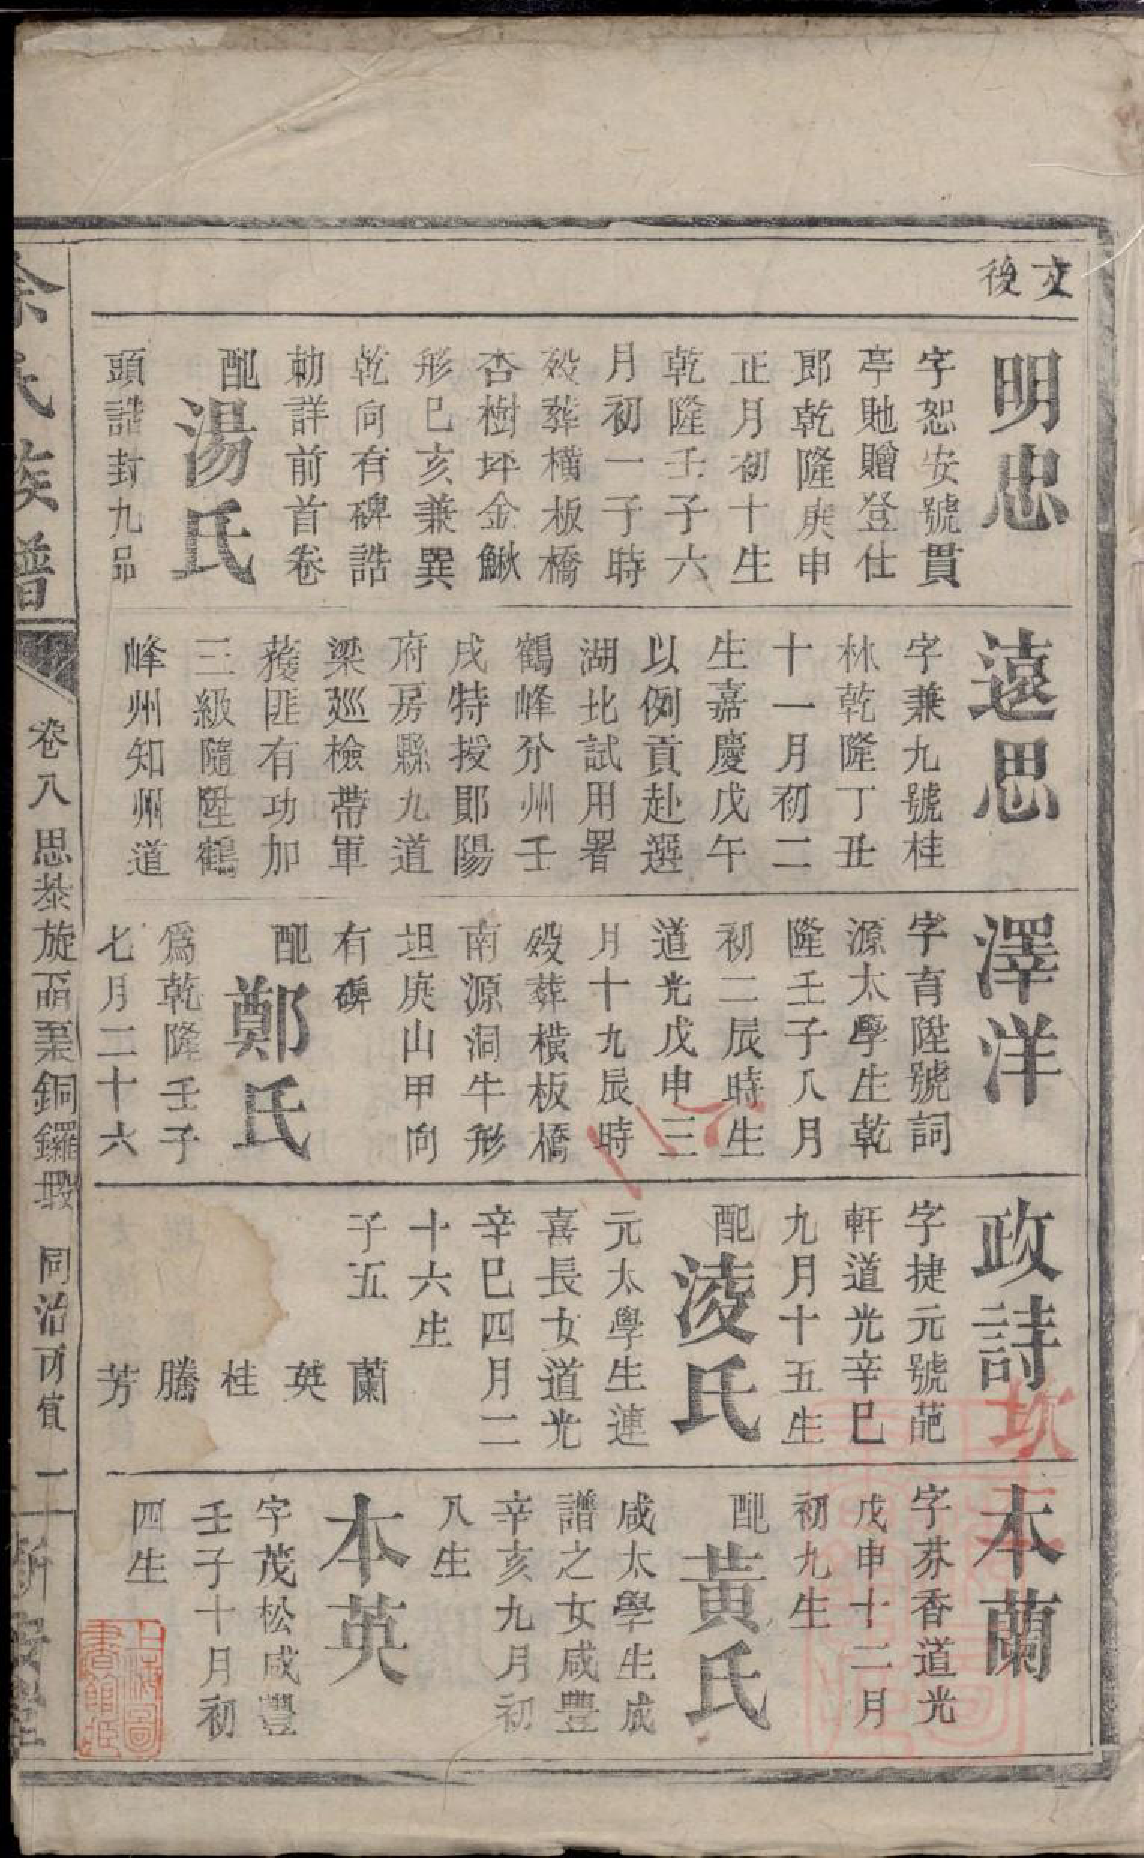 文後
明忠
字恕安號貫
亭貤贈登仕
郎乾隆庚申
正月初十生
乾隆壬子六
月初一子時
歿葬橫板橋
杏樹坪金鰍
形巳亥兼巽
乾向有碑誥
勅詳前首卷
配
湯氏
頭誥封九品
遠思
字兼九號桂
林乾隆丁丑
十一月初二
生嘉慶戊午
以例貢赴選
湖北試用署
鶴峰分州壬
戌特授鄖陽
府房縣九道
梁廵檢帶軍
獲匪有功加
三級隨陞鶴
峰州知州道
澤洋
字育陞號詞
源太學生乾
隆壬子八月
初二辰時生
道光戊申三
月十九辰時
歿葬橫板橋
南源洞牛形
坦庚山甲向
有碑
配
鄭氏
爲乾隆壬子
七月二十六
政詩
字捷元號葩
軒道光辛巳
九月十五生
配
淩氏
元太學生連
喜長女道光
辛巳四月二
十六生
子五 蘭
英
桂
騰
芳
本蘭
字芬香道光
戊申十二月
初九生
配
黃氏
咸太學生成
譜之女咸豐
辛亥九月初
八生
本英
字茂松咸豐
壬子十月初
四生
徐氏族譜
卷八思恭旋酉業銅鑼塅 同治丙寅 二 新安堂